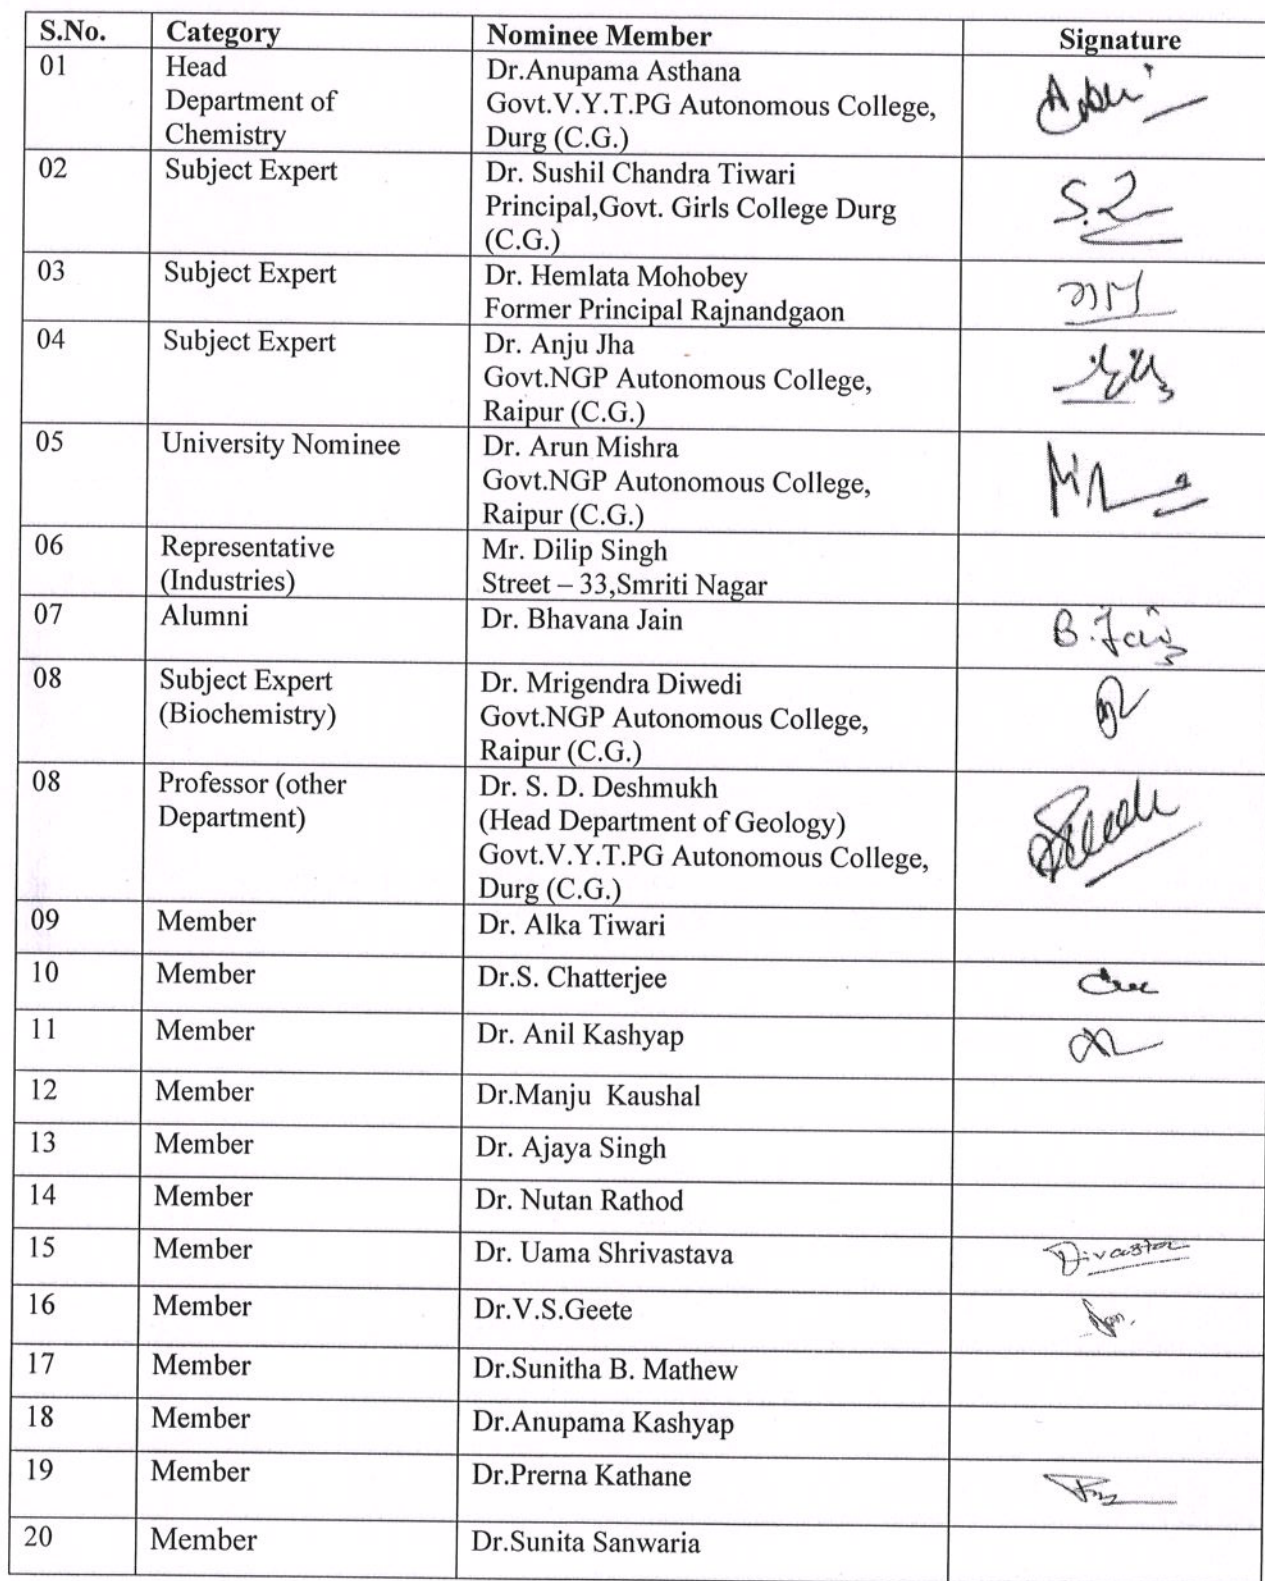 S.No. Category Nominee Member Signature
01 Head Dr.Anupama Asthana
Department of Govt.V.Y.T.PG Autonomous College,
Chemistry Durg (C.G.)
02 Subject Expert Dr. Sushil Chandra Tiwari
Principal,Govt. Girls College Durg
(C.G.)
03 Subject Expert Dr. Hemlata Mohobey
Former Principal Rajnandgaon
04 Subject Expert Dr. Anju Jha
Govt.NGP Autonomous College,
Raipur (C.G.)
05 University Nominee Dr. Arun Mishra
Govt.NGP Autonomous College,
Raipur (C.G.)
06 Representative Mr. Dilip Singh
(Industries) Street – 33,Smriti Nagar
07 Alumni Dr. Bhavana Jain B.Jain
08 Subject Expert Dr. Mrigendra Diwedi
(Biochemistry) Govt.NGP Autonomous College,
Raipur (C.G.)
08 Professor (other Dr. S. D. Deshmukh
Department) (Head Department of Geology)
Govt.V.Y.T.PG Autonomous College,
Durg (C.G.)
09 Member Dr. Alka Tiwari
10 Member Dr.S. Chatterjee
11 Member Dr. Anil Kashyap
12 Member Dr.Manju Kaushal
13 Member Dr. Ajaya Singh
14 Member Dr. Nutan Rathod
15 Member Dr. Uama Shrivastava
16 Member Dr.V.S.Geete
17 Member Dr.Sunitha B. Mathew
18 Member Dr.Anupama Kashyap
19 Member Dr.Prerna Kathane
20 Member Dr.Sunita Sanwaria